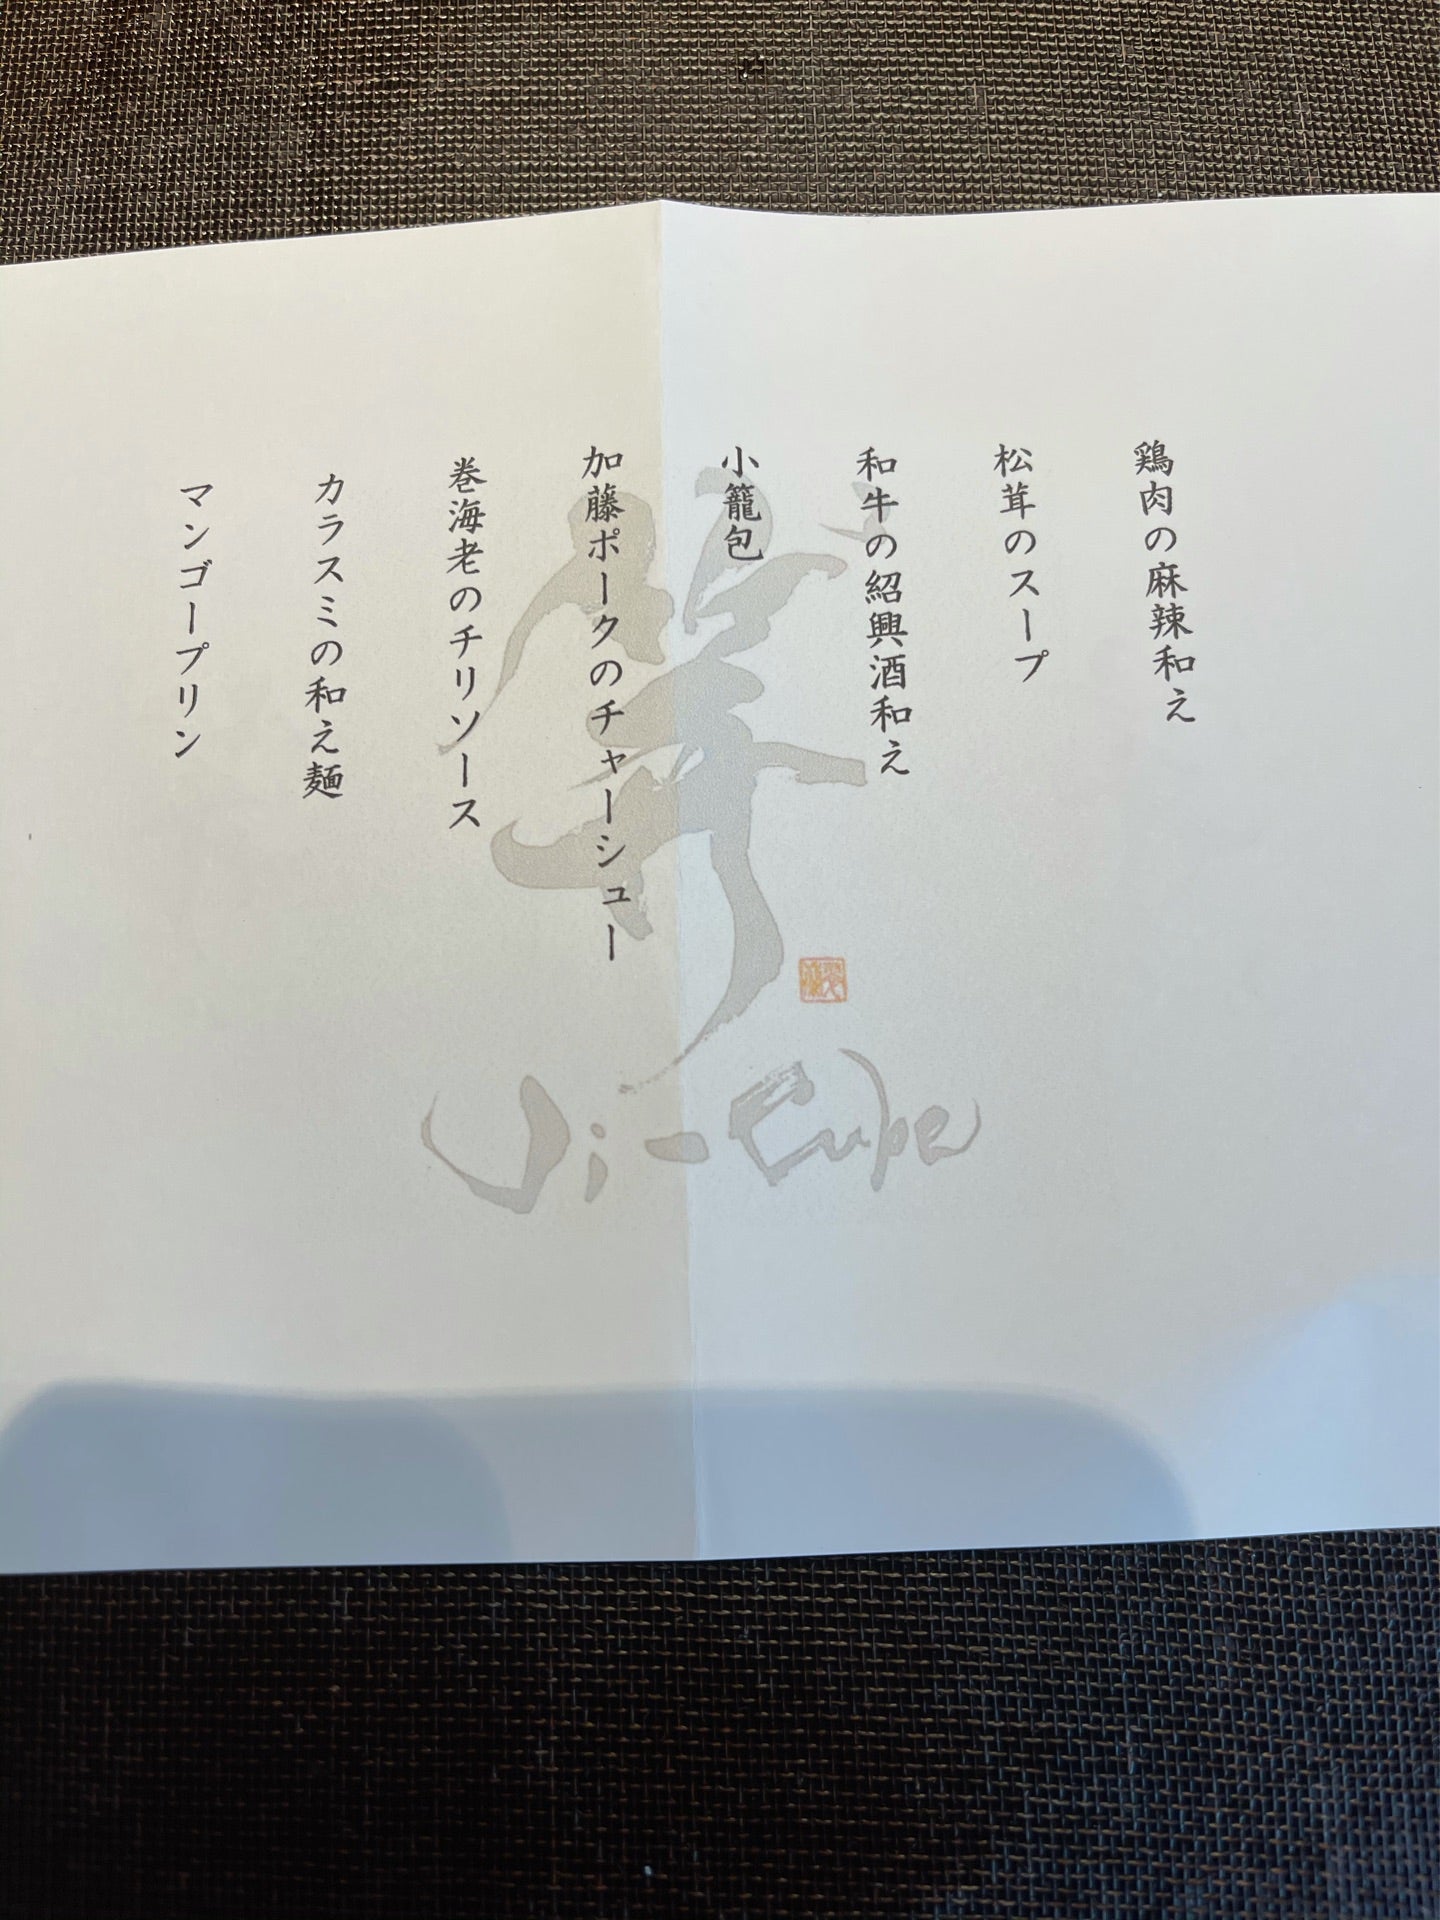 鶏肉の麻辣和え
松茸のスープ
和牛の紹興酒和え
小籠包
加藤ポークのチャーシュー
巻海老のチリソース
カラスミの和え麺
マンゴープリン
Ji-Cube